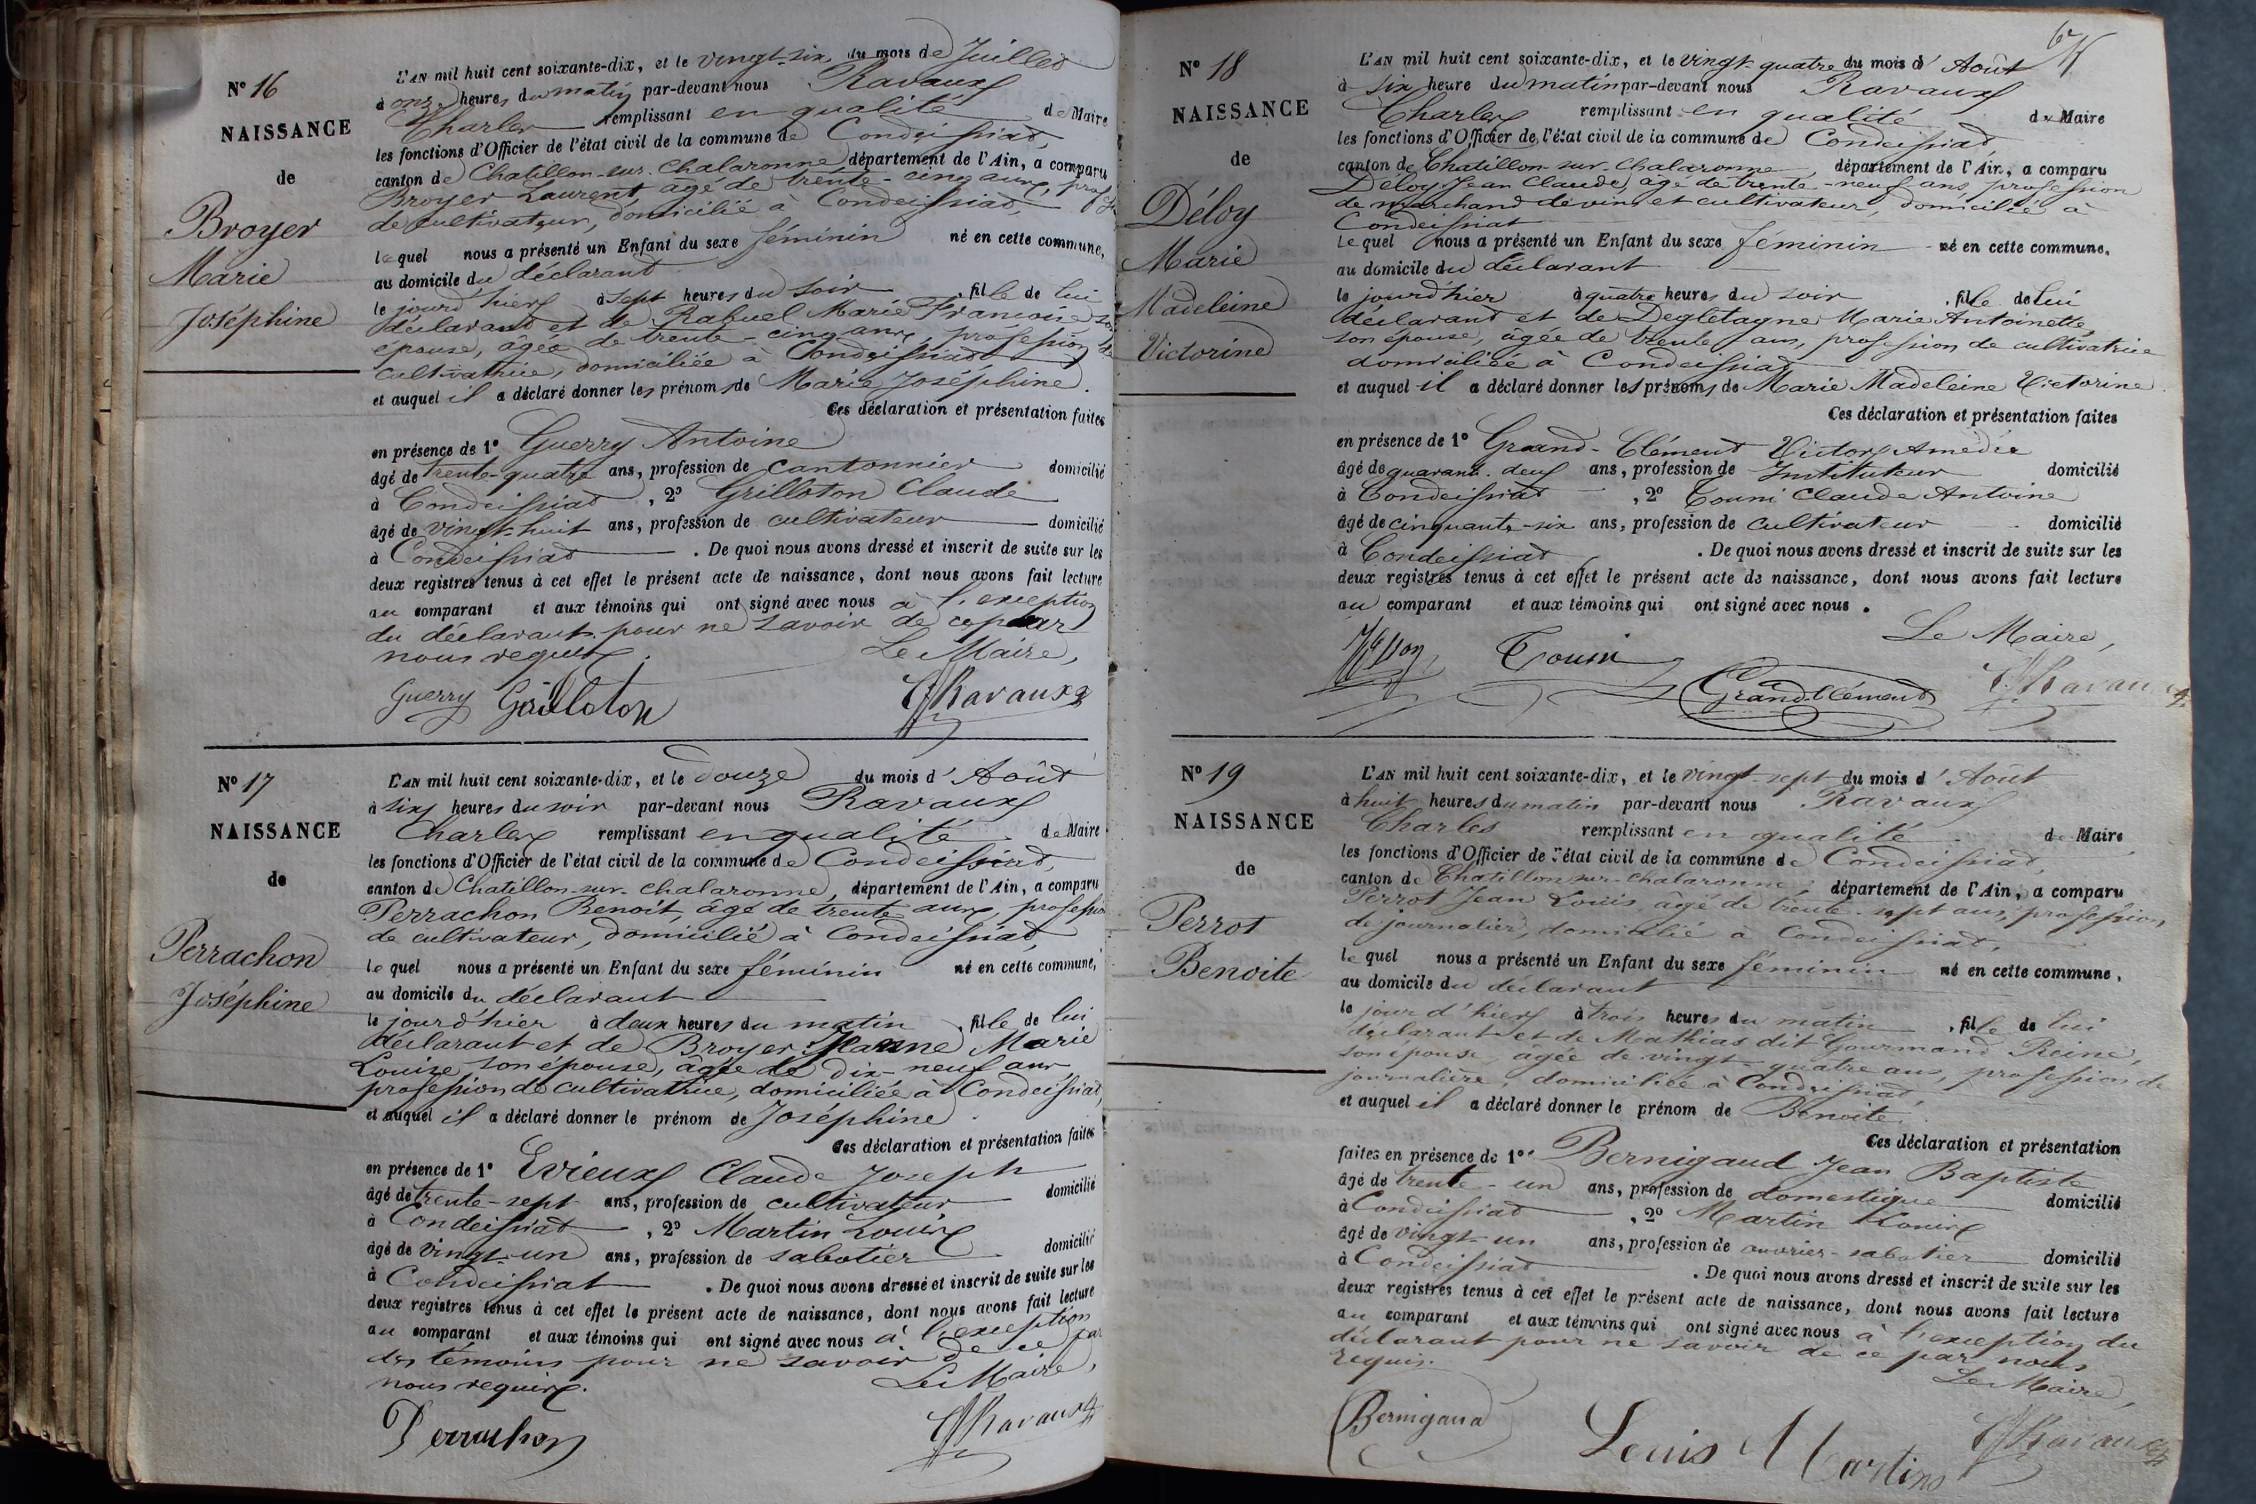 N° 16
NAISSANCE
de
Broyer
Marie
Joséphine
L'AN mil huit cent soixante-dix, et le vingt-six du mois de Juillet
à onze heures du matin par-devant nous Ravaux
Charles remplissant en qualité de Maire
les fonctions d'Officier de l'état civil de la commune de Condeissiat,
canton de Chatillon-sur-Chalaronne, département de l'Ain, a comparu
Broyer Laurent, âgé de trente-cinq ans,
de cultivateur, domicilié à Condeissiat,
lequel nous a présenté un Enfant du sexe féminin né en cette commune,
au domicile du déclarant
le jourd'hier à sept heures du soir, fille de lui
déclarant et de Rabuel Marie Françoise son
épouse, âgée de trente-cinq ans, profession de
cultivatrice, domiciliée à Condeissiat
et auquel il a déclaré donner les prénoms de Marie Joséphine.
Ces déclaration et présentation faites
en présence de 1° Guerry Antoine
âgé de trente-quatre ans, profession de cantonnier domicilié
à Condeissiat, 2° Grilloton Claude
âgé de vingt-huit ans, profession de cultivateur domicilié
à Condeissiat. De quoi nous avons dressé et inscrit de suite sur les
deux registres tenus à cet effet le présent acte de naissance, dont nous avons fait lecture
au comparant et aux témoins qui ont signé avec nous à l'exception
du déclarant pour ne savoir de ce par
nous requis.
Le Maire,
Guerry Grilloton Ravaux
N° 17
NAISSANCE
de
Perrachon
Joséphine
L'AN mil huit cent soixante-dix, et le douze du mois d'Août
à six heures du soir par-devant nous Ravaux
Charles remplissant en qualité de Maire
les fonctions d'Officier de l'état civil de la commune de Condeissiat,
canton de Chatillon-sur-Chalaronne, département de l'Ain, a comparu
Perrachon Benoit, âgé de trente ans, profession
de cultivateur, domicilié à Condeissiat
lequel nous a présenté un Enfant du sexe féminin né en cette commune,
au domicile du déclarant
le jourd'hier à deux heures du matin, fille de lui
déclarant et de Broyer Jeanne Marie
Louise son épouse, âgée de dix-neuf ans
profession de cultivatrice, domiciliée à Condeissiat,
et auquel il a déclaré donner le prénom de Joséphine
Ces déclaration et présentation faites
en présence de 1° Evieux Claude Joseph
âgé de trente-sept ans, profession de cultivateur domicilié
à Condeissiat, 2° Martin Louis
âgé de vingt-un ans, profession de sabotier domicilié
à Condeissiat. De quoi nous avons dressé et inscrit de suite sur les
deux registres tenus à cet effet le présent acte de naissance, dont nous avons fait lecture
au comparant et aux témoins qui ont signé avec nous à l'exception
des témoins pour ne savoir de ce par
nous requis.
Le Maire,
Perrachon Ravaux
N° 18
NAISSANCE
de
Déloy
Marie
Madeleine
Victorine
L'AN mil huit cent soixante-dix, et le vingt-quatre du mois d'Août
à six heure du matin par-devant nous Ravaux
Charles remplissant en qualité de Maire
les fonctions d'Officier de l'état civil de la commune de Condeissiat,
canton de Chatillon-sur-Chalaronne, département de l'Ain, a comparu
Déloy Jean Claude, âgé de trente-neuf ans, profession
de marchand de vin et cultivateur, domicilié à
Condeissiat
lequel nous a présenté un Enfant du sexe féminin né en cette commune,
au domicile du déclarant
le jourd'hier à quatre heures du soir, fille de lui
déclarant et de Degletagne Marie Antoinette,
son épouse, âgée de trente ans, profession de cultivatrice
domiciliée à Condeissiat
et auquel il a déclaré donner les prénoms de Marie Madeleine Victorine.
Ces déclaration et présentation faites
en présence de 1° Grand-Clément Victor Amédée
âgé de quarante-deux ans, profession de Instituteur domicilié
à Condeissiat, 2° Touni Claude Antoine
âgé de cinquante-six ans, profession de cultivateur domicilié
à Condeissiat. De quoi nous avons dressé et inscrit de suite sur les
deux registres tenus à cet effet le présent acte de naissance, dont nous avons fait lecture
au comparant et aux témoins qui ont signé avec nous.
Le Maire,
Grandclément Ravaux
N° 19
NAISSANCE
de
Perrot
Benoite
L'AN mil huit cent soixante-dix, et le vingt-sept du mois d'Août
à huit heures du matin par-devant nous Ravaux
Charles remplissant en qualité de Maire
les fonctions d'Officier de l'état civil de la commune de Condeissiat,
canton de Chatillon-sur-Chalaronne, département de l'Ain, a comparu
Perrot Jean Louis, âgé de trente-sept ans, profession
de journalier, domicilié à Condeissiat,
lequel nous a présenté un Enfant du sexe féminin né en cette commune,
au domicile du déclarant
le jour d'hier à trois heures du matin, fille de lui
déclarant et de Mathias dit Gourmand Reine,
son épouse, âgée de vingt-quatre ans, profession de
journalière, domiciliée à Condeissiat,
et auquel il a déclaré donner le prénom de Benoite.
Ces déclaration et présentation
faites en présence de 1° Bernigaud Jean Baptiste
âgé de trente-un ans, profession de domestique domicilié
à Condeissiat, 2° Martin Louis
âgé de vingt-un ans, profession de ouvrier-sabotier domicilié
à Condeissiat. De quoi nous avons dressé et inscrit de suite sur les
deux registres tenus à cet effet le présent acte de naissance, dont nous avons fait lecture
au comparant et aux témoins qui ont signé avec nous à l'exception du
déclarant pour ne savoir de ce par nous
requis.
Le Maire,
Bernigaud Louis Martin Ravaux